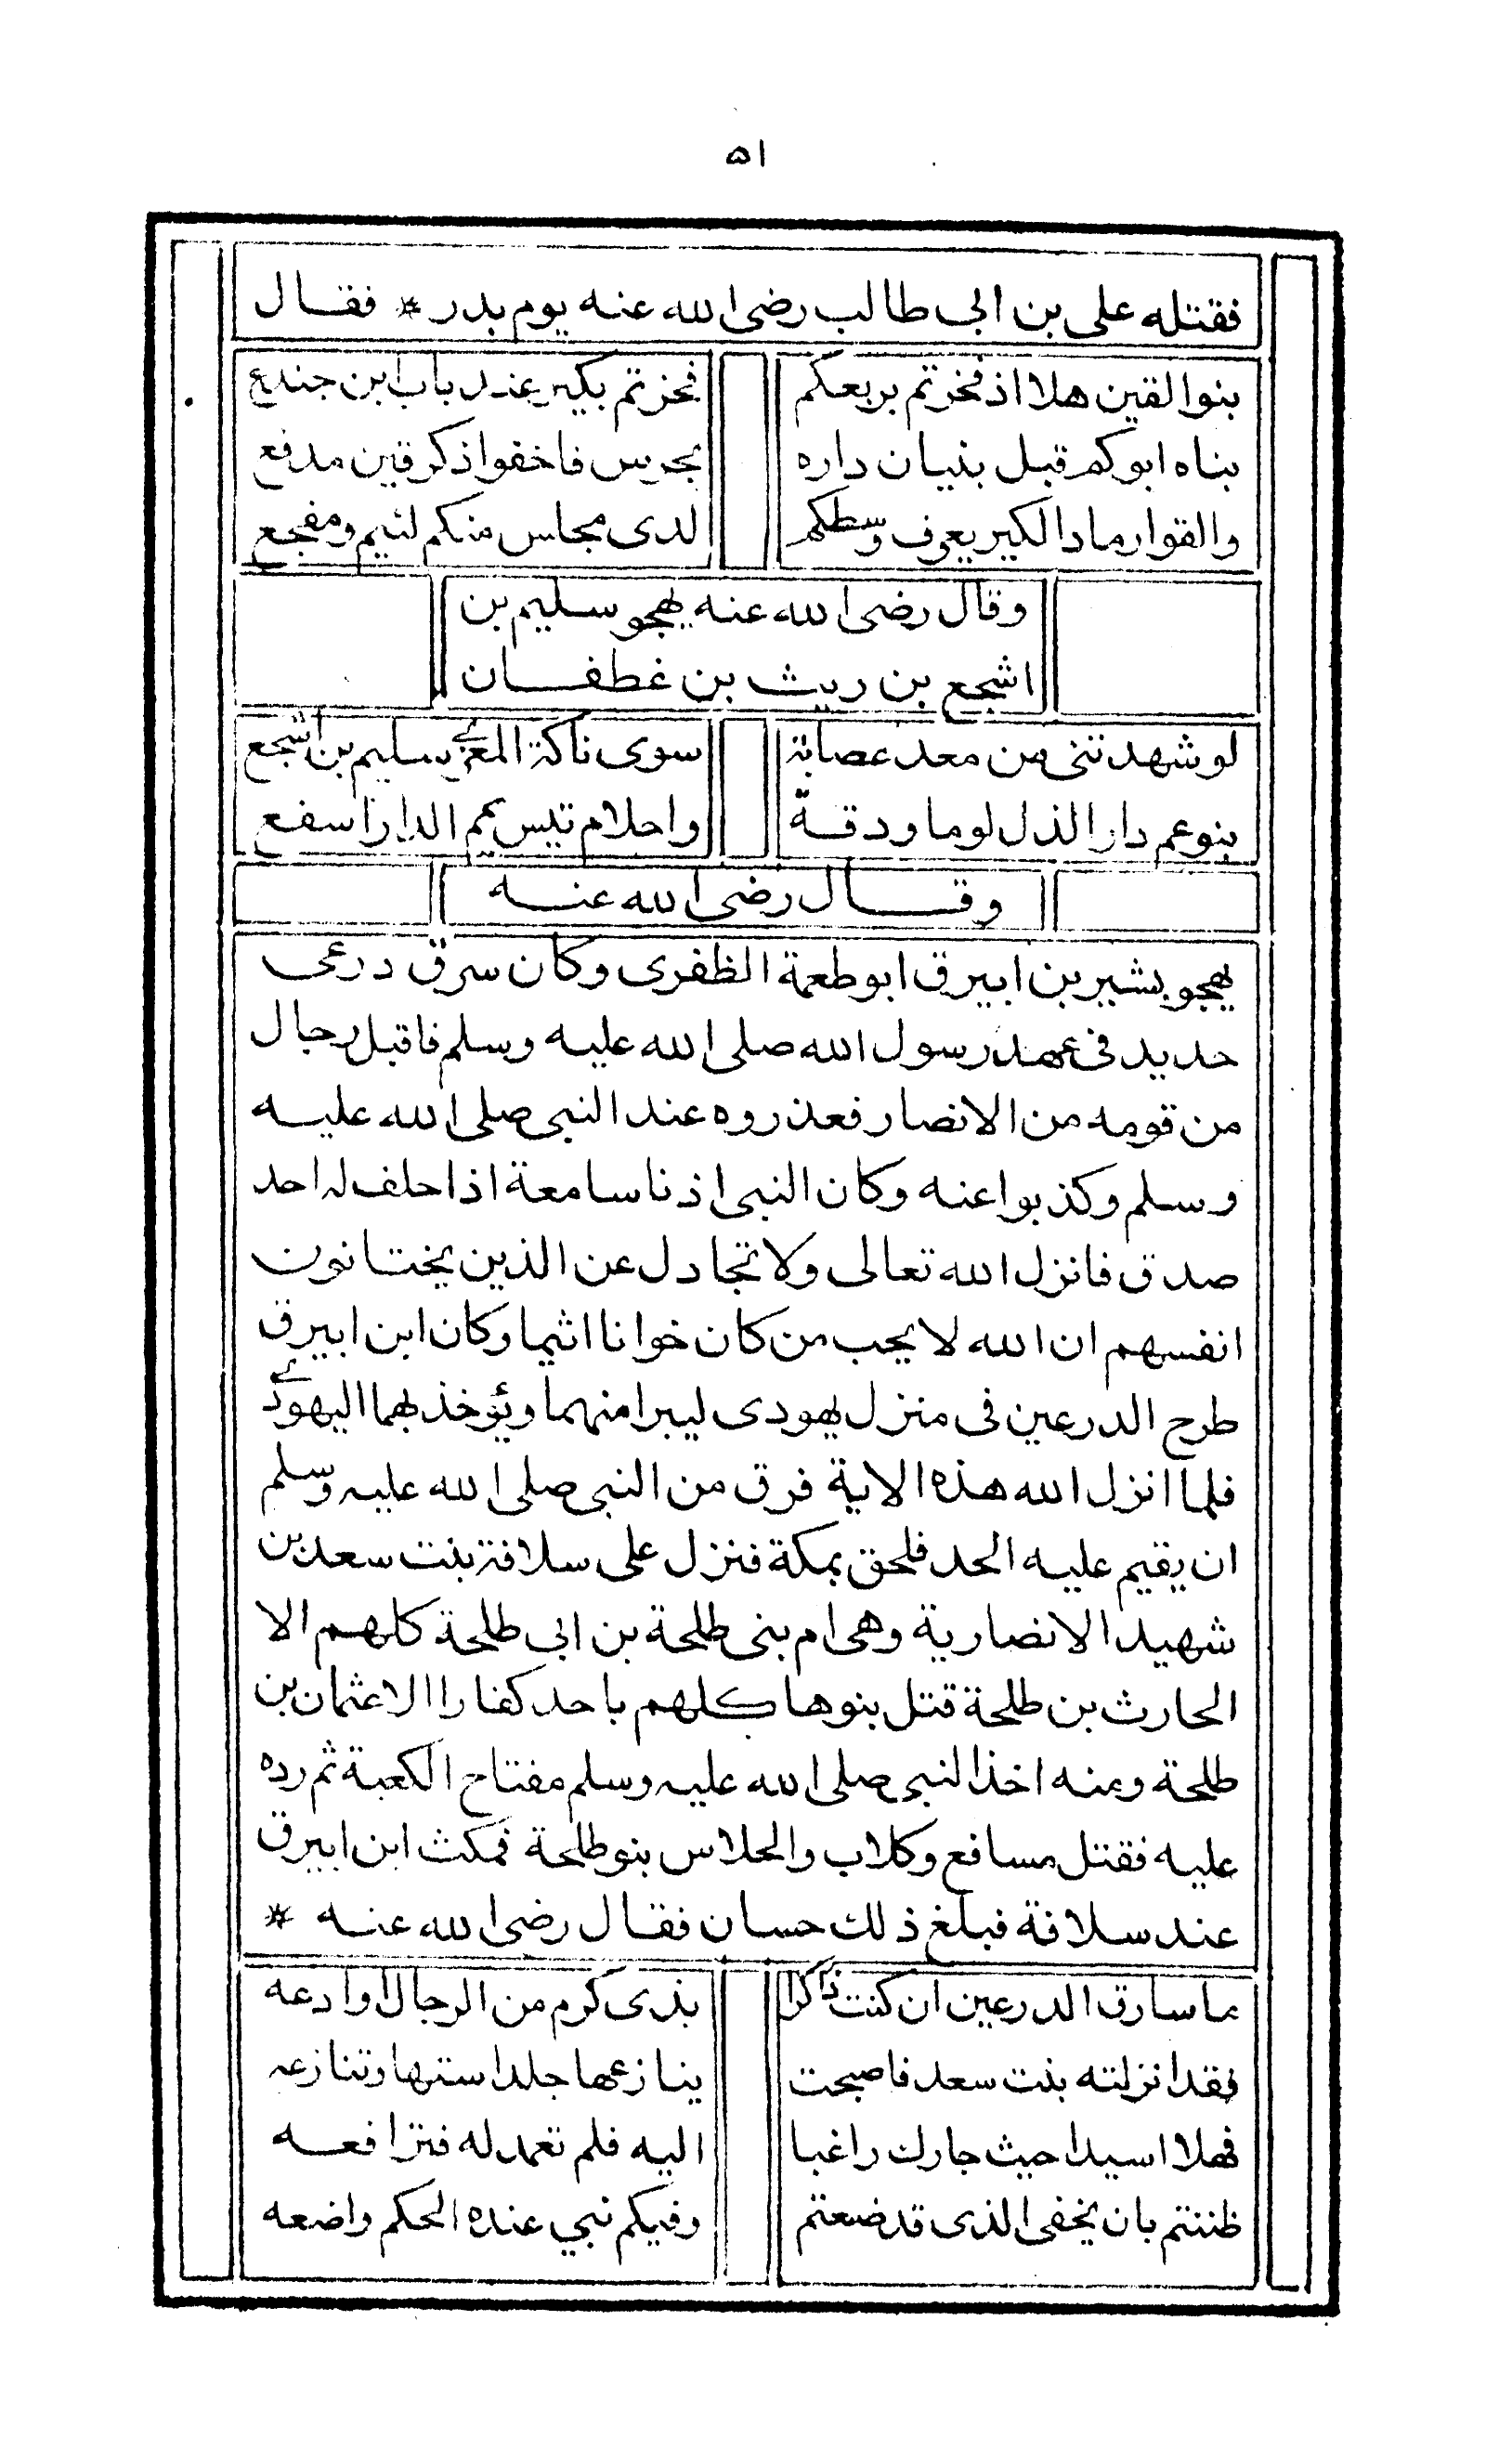 ٥١
فقتله على بن ابى طالب رضى الله عنه يوم بدر * فقال
بنو القين هلا اذ فخرتم بربعكم فخرتم بكير عند باب ابن جندع
بناه ابوكم قبل بنيان داره بحرس فاخفوا ذكر قين مدفع
والقوا رماد الكير يعرف وسطكم لدى مجلس منكم لئيم ومفجع
وقال رضى الله عنه يهجو سليم بن
اشجع بن ريث بن غطفان
لو شهدتنى من معد عصابة سوى ناكة المعزى سليم بن اشجع
بنو عم دار الذل لوما ودقة واحلام تيس يمم الدار اسفع
وقال رضى الله عنه
يهجو بشير بن ابيرق ابو طعمة الظفرى وكان سرق درعى
حديد فى عهد رسول الله صلى الله عليه وسلم فاقبل رجال
من قومه من الانصار فعذروه عند النبى صلى الله عليه
وسلم وكذبوا عنه وكان النبى اذنا سامعة اذا حلف له احد
صدق فانزل الله تعالى ولا تجادل عن الذين يختانون
انفسهم ان الله لا يحب من كان خوانا اثيما وكان ابن ابيرق
طرح الدرعين فى منزل يهودى ليبرا منهما ويؤخذ بهما اليهودى
فلما انزل الله هذه الاية فرق من النبى صلى الله عليه وسلم
ان يقيم عليه الحد فلحق بمكة فنزل على سلافة بنت سعد بن
شهيد الانصارية وهى ام بنى طلحة بن ابى طلحة كلهم الا
الحارث بن طلحة قتل بنوها كلهم باحد كفارا الا عثمان بن
طلحة وعنه اخذ النبى صلى الله عليه وسلم مفتاح الكعبة ثم رده
عليه فقتل مسافع وكلاب والجلاس بنو طلحة فمكث ابن ابيرق
عند سلافة فبلغ ذلك حسان فقال رضى الله عنه *
ما سارق الدرعين ان كنت ذاكرا بذى كرم من الرجال اوادعه
فقد انزلته بنت سعد فاصبحت ينازعها جلد استها وتنازعه
فهلا اسيدا حيث جارك راغبا اليه فلم تعمد له فترافعه
ظننتم بان يخفى الذى قد صنعتم وفيكم نبي عنده الحكم واضعه